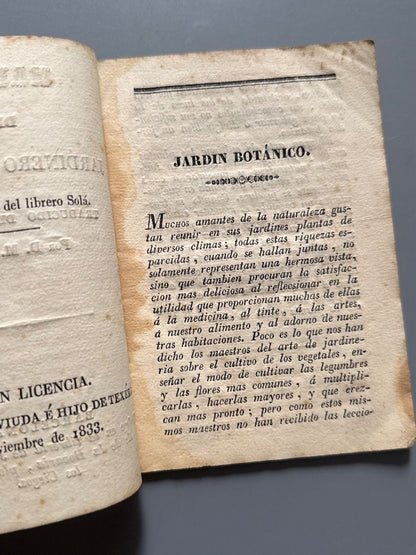 JARDINERO
del librero Solá.
N LICENCIA.
VIUDA É HIJO DE TEXÉ
viembre de 1833.
JARDIN BOTÁNICO.
Muchos amantes de la naturaleza gus-
tan reunir en sus jardines plantas de
diversos climas; todas estas riquezas es-
parcidas, cuando se hallan juntas, no
solamente representan una hermosa vista,
sino que tambien procuran la satisfac-
cion mas deliciosa al reflecsionar en la
utilidad que proporcionan muchas de ellas
á la medicina, al tinte, á las artes,
á nuestro alimento y al adorno de nues-
tras habitaciones. Poco es lo que nos han
dicho los maestros del arte de jardine-
ria sobre el cultivo de los vegetales, en-
señar el modo de cultivar las legumbres
y las flores mas comunes, á multipli-
carlas, hacerlas mayores, y que crez-
can mas pronto; pero como estos mis-
mos maestros no han recibido las leccio-